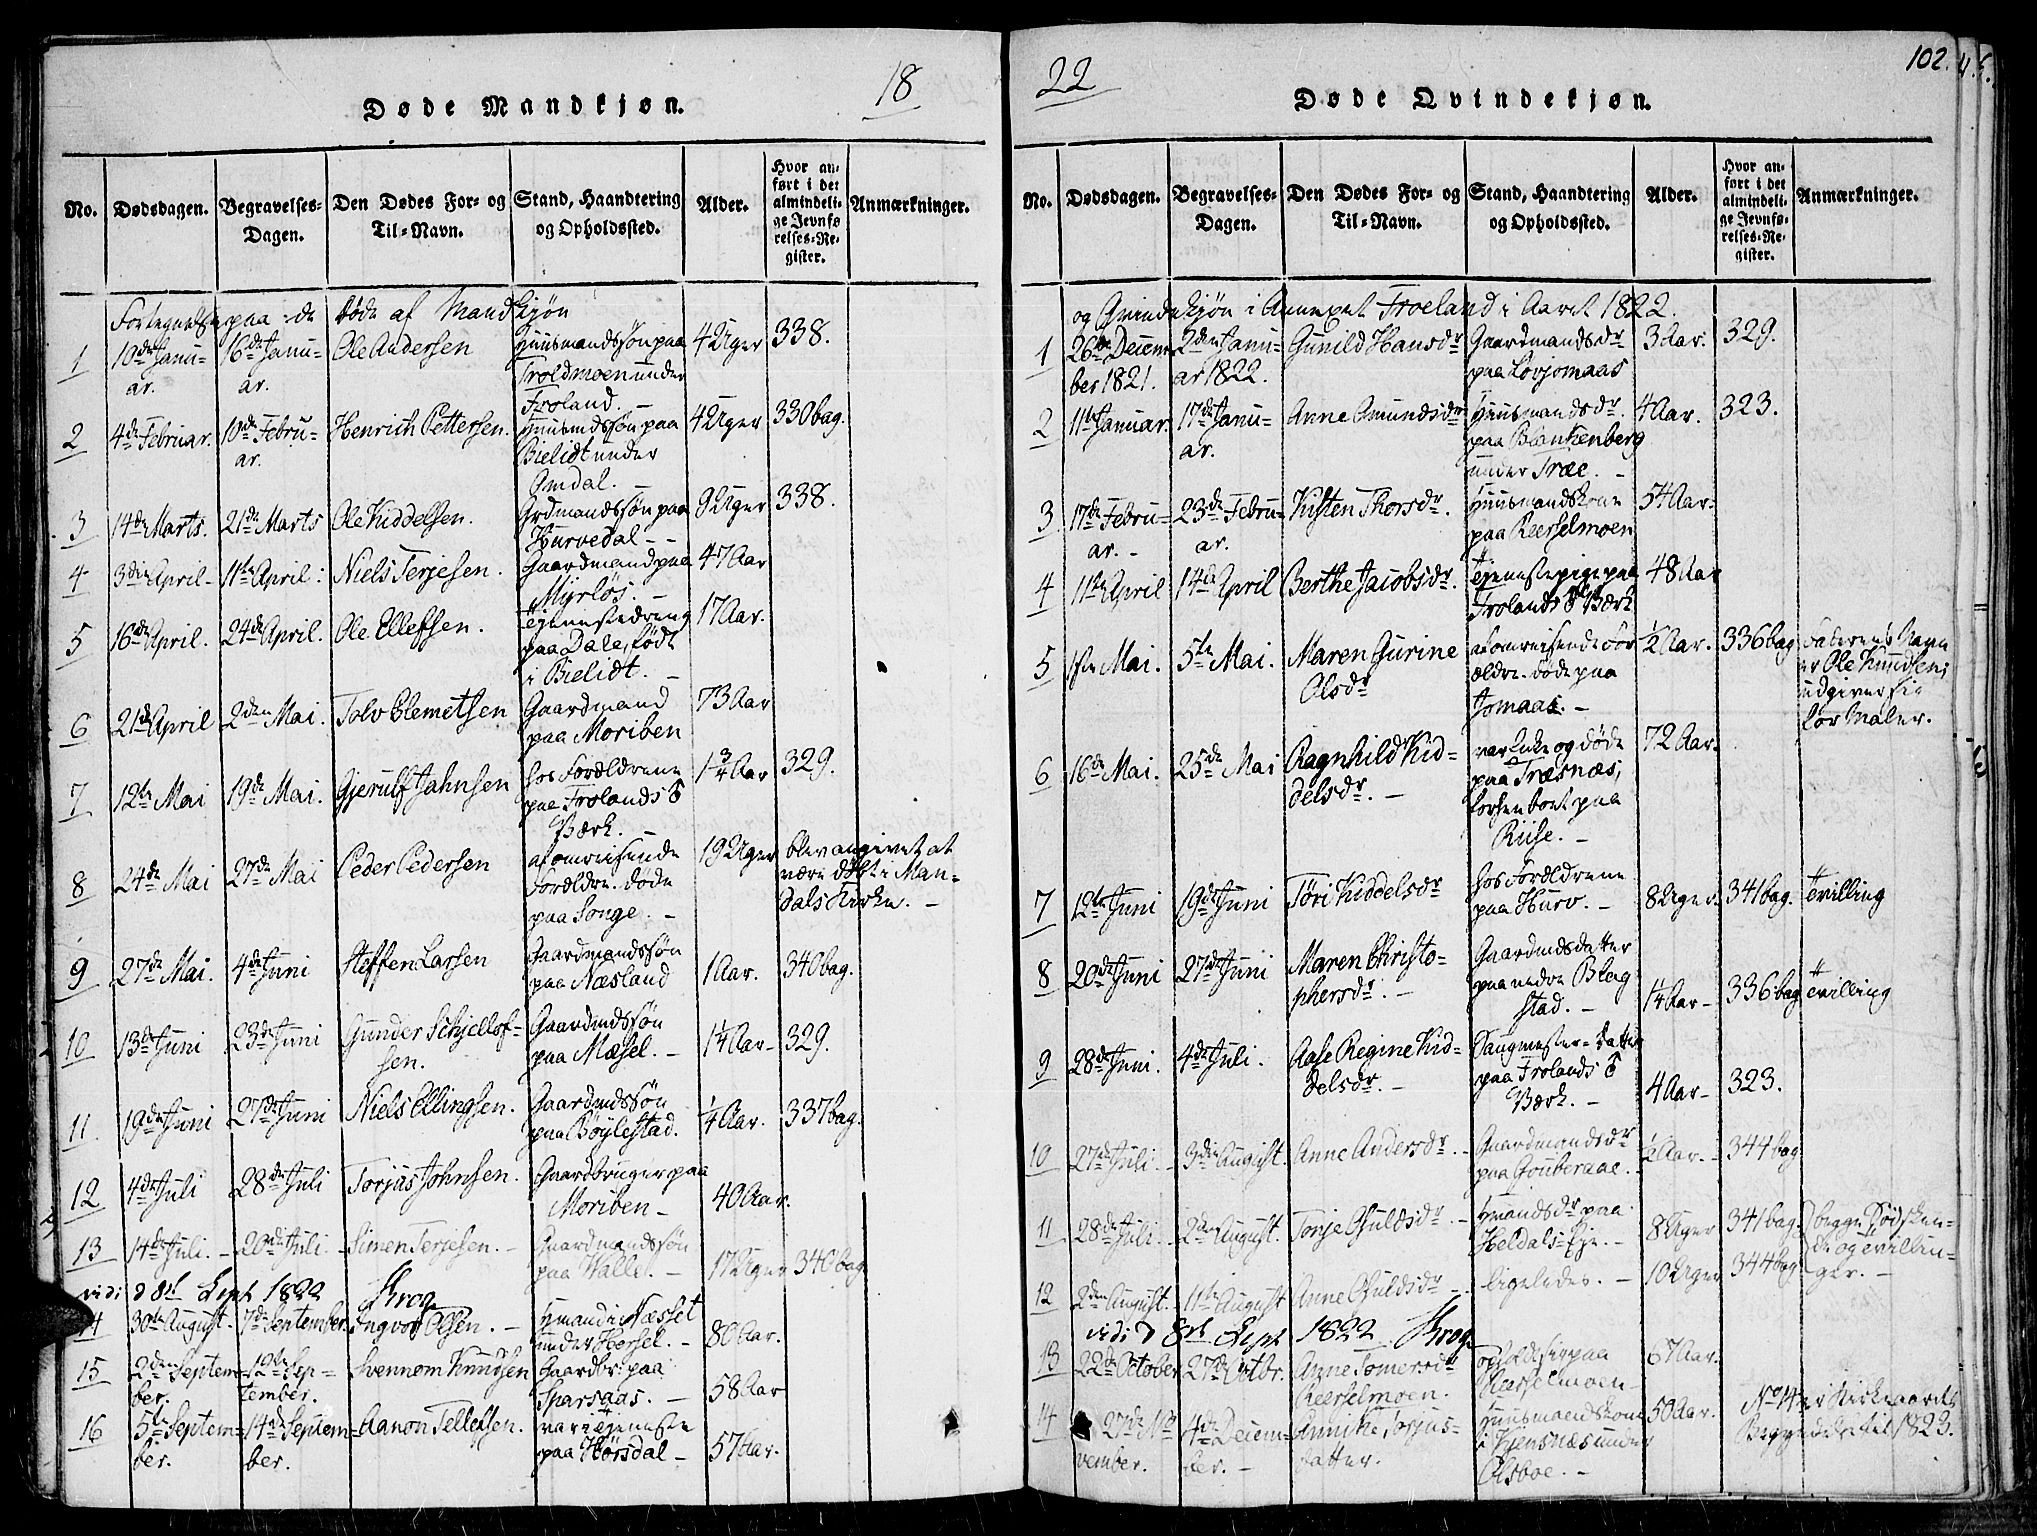 18
Døde Mandkjøn.
No. Dødsdagen. Begravelses-Dagen. Den Dødes For- og Til-Navn. Stand, Haandtering og Opholdssted. Alder. Hvor anført i det almindelige Jevnførelses-Register. Anmærkninger.
Fortegnelse paa de Døde af Mandkjøn
1 10de Januar. 16de Januar. Ole Andersen Huusmandssøn paa Troldmoen under Froland. 4 Uger 338.
2 4de Februar. 10de Februar. Henrich Pettersen. Huusmdssøn paa Bielidt under Omdal. 4 Uger 330 bag.
3 14de Marts. 21de Marts Ole Kiddelsen. Grdmandssøn paa Hurvedal 9 Uger 338.
4 3die April 11te April. Niels Terjesen. Gaardmand paa Myrløs. 47 Aar
5 16de April. 24de April. Ole Ellefsen. Tjenestedreng paa Dale, født i Bielidt. 17 Aar.
6 21de April 2den Mai. Tolv Clemetsen Gaardmand paa Moriben 73 Aar
7 12te Mai 19de Mai. Gjerulf Jahnsen hos Forældrene paa Frolands Værk. 1 3/4 Aar 329.
8 24de Mai 27de Mai Peder Pedersen af omreisende Forældre. døde paa Songe. 19 Uger blev angivet at være døbt i Mandals Kirke.
9 27de Mai. 4de Juni Steffen Larsen Gaardmandssøn paa Næsland 1 Aar. 340 bag.
10 13de Juni 23de Juni Gunder Schjellofsen. Gaardmdssøn paa Mæsel. 1 1/4 Aar 329.
11 19de Juni 27de Juni Niels Ellingsen. Gaardmdssøn paa Bøylestad. 1/4 Aar. 337 bag.
12 4de Juli 28de Juli Torjus Johnsen. Gaardbruger paa Moriben 40 Aar.
13 14de Juli. 20de Juli. Simen Terjesen. Gaardmandssøn paa Walle. 17 Uger 340 bag
vidi d 8de Sept 1822 Krog
14 30te August. 7de September. Ingvor Olsen. Hmand i Næsset under Hersel. 80 Aar.
15 2den September. 12te September. Svennom Knudsen Gaardbr. paa Sparsaas. 58 Aar
16 5te September. 14de September. Aanon Tellefsen. var i Tjeneste paa Hørsdal 57 Aar.
22
102.
Døde Qvindekjøn.
No. Dødsdagen. Begravelses-Dagen. Den Dødes For- og Til-Navn. Stand, Haandtering og Opholdssted. Alder. Hvor anført i det almindelige Jevnførelses-Register. Anmærkninger.
og Qvindekjøn i Annexet Froeland i Aaret 1822.
1 26de December 1821. 2den Januar 1822. Gunild Hansdr Gaardmandsdr paa Lovjomaas 3 Aar. 329.
2 11te Januar. 17de Januar. Anne Amundsdr Huusmandsdr. paa Blankenberg under Træe. 4 Aar. 323.
3 17de Februar. 23de Februar. Kisten Thorsdr. Huusmandskone paa Reerselmoen 54 Aar.
4 11te April 14de April Berthe Jacobsdr. Tjenestepige paa Frolands Værk 48 Aar
5 1ste Mai. 5te Mai. Maren Gurine Olsdr af omreisende Forældre. døde paa Jomaas. 1/2 Aar. 336 bag Faderens Navn er Ole Knudsen, udgiver sig for Maler.
6 16de Mai. 25de Mai Ragnhild Kiddelsdr. var Enke og døde paa Træsnæs, forhen boet paa Riise. 72 Aar.
7 12te Juni 19de Juni Tøri Kiddelsdr hos Forældrene paa Hurv. 8 Uger. 341 bag. Tvilling
8 20de Juni 27de Juni Maren Christophersdr. Gaardmdsdatter paa nedre Blagstad. 1/4 Aar 336 bag Tvilling
9 28de Juni. 4de Juli. Aase Regine Kiddelsdr. Saugmester-Datter paa Frolands Værk. 4 Aar 323.
10 27de Juli. 3die August. Anne Andersdr. Gaardmandsdr paa Gouberaae. 1/2 Aar. 344 bag
11 28de Juli. 2den August. Tonje Guldsdr. Hmandsdr paa Heldals-Eje. 8 Uger 341 bag. begge Sødskende og Tvillinger.
12 2den August. 11te August Anne Guldsdr ligeledes. 10 Uger 344 bag
vidi d 8de Sept 1822 Krog
13 22de October 27de Octbr. Anne Tomersdr Reerselmoen. opholdt sig paa Reerselmoen 67 Aar.
14 27de November. 4de December. Annike Torjusdatter. Huusmandskone i Tjensnæs under Olsboe. 50 Aar. No 14 er Kirkegaards Begyndelse til 1823.